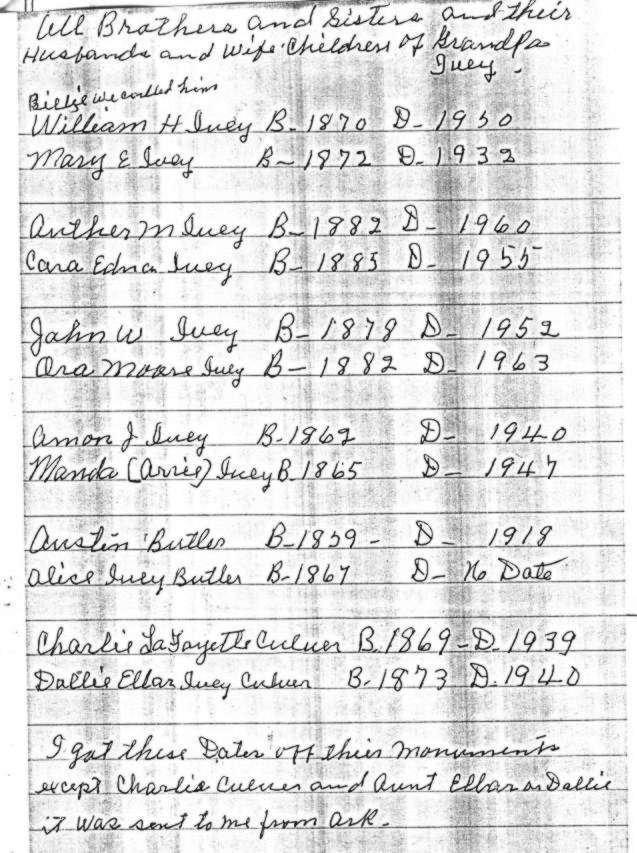 All Brothers and Sisters and their
Husbands and Wife. Children of Grandpa
Ivey.
Billie we called him
William H Ivey B- 1870 D- 1950
Mary E Ivey B- 1872 D- 1932
Anther M Ivey B- 1882 D- 1960
Cara Edna Ivey B- 1885 D- 1955
John W Ivey B- 1878 D- 1952
Ora Moore Ivey B- 1882 D- 1963
Amon J Ivey B-1862 D- 1940
Manda (Arrie) Ivey B. 1865 D- 1947
Austin Butler B-1859 - D- 1918
Alice Ivey Butler B-1867 D- No Date
Charlie LaFayette Culver B. 1869-D. 1939
Dallie Ellar Ivey Culver B- 1873 D. 1940
I got these Dates off their Monuments
except Charlie Culver and Aunt Ellar or Dallie
it was sent to me from Ark.